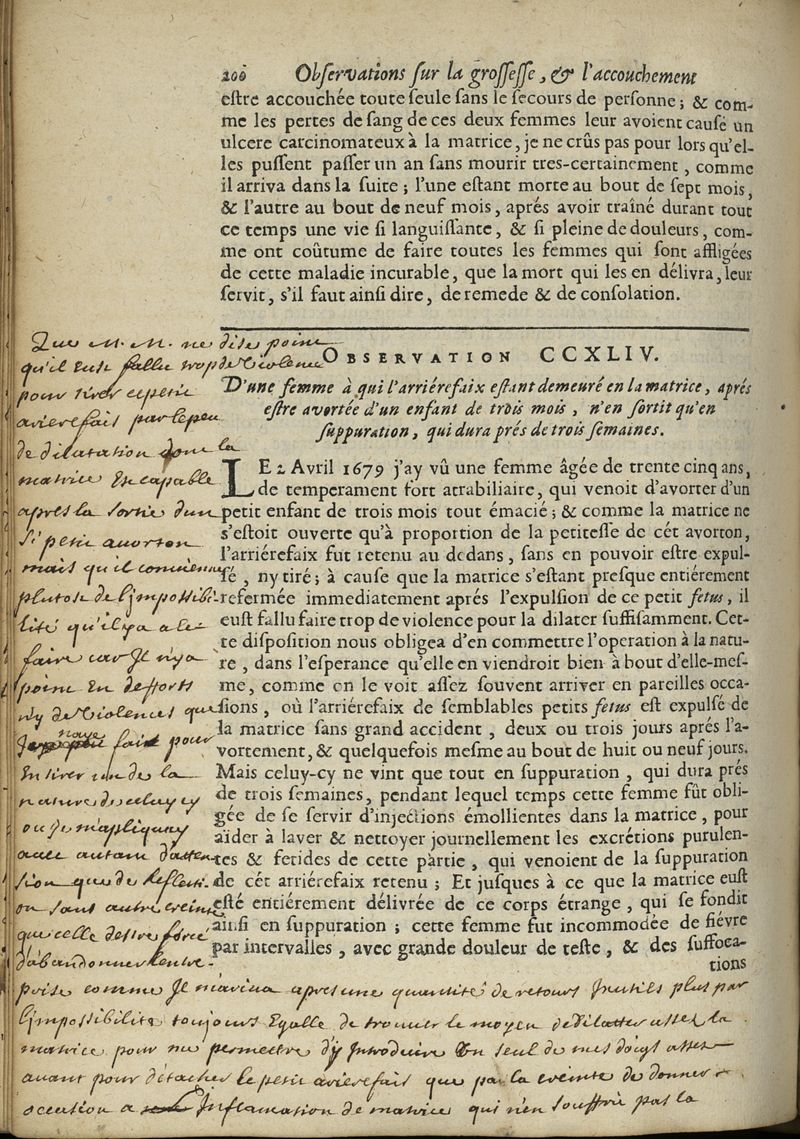 200 Observations sur la grossesse, & l'accouchement
estre accouchée toute seule sans le secours de personne; & com-
me les pertes de sang de ces deux femmes leur avoient causé un
ulcere carcinomateux à la matrice, je ne crûs pas pour lors qu'el-
les pussent passer un an sans mourir tres-certainement, comme
il arriva dans la suite; l'une estant morte au bout de sept mois,
& l'autre au bout de neuf mois, aprés avoir traîné durant tout
ce temps une vie si languissante, & si pleine de douleurs, com-
me ont coûtume de faire toutes les femmes qui sont affligées
de cette maladie incurable, que la mort qui les en délivra, leur
servit, s'il faut ainsi dire, de remede & de consolation.
OBSERVATION CCXLIV.
D'une femme à qui l'arriérefaix estant demeuré en la matrice, aprés
estre avortée d'un enfant de trois mois, n'en sortit qu'en
suppuration, qui dura prés de trois semaines.
LE 2 Avril 1679 j'ay vû une femme âgée de trente cinq ans,
de temperament fort atrabiliaire, qui venoit d'avorter d'un
petit enfant de trois mois tout émacié; & comme la matrice ne
s'estoit ouverte qu'à proportion de la petitesse de cét avorton,
l'arriérefaix fut retenu au dedans, sans en pouvoir estre expul-
sé, ny tiré; à cause que la matrice s'estant presque entiérement
refermée immediatement aprés l'expulsion de ce petit fetus, il
eust fallu faire trop de violence pour la dilater suffisamment. Cet-
te disposition nous obligea d'en commettre l'operation à la natu-
re, dans l'esperance qu'elle en viendroit bien à bout d'elle-mes-
me, comme on le voit assez souvent arriver en pareilles occa-
sions, où l'arriérefaix de semblables petits fetus est expulsé de
la matrice sans grand accident, deux ou trois jours aprés l'a-
vortement, & quelquefois mesme au bout de huit ou neuf jours.
Mais celuy-cy ne vint que tout en suppuration, qui dura prés
de trois semaines, pendant lequel temps cette femme fût obli-
gée de se servir d'injections émollientes dans la matrice, pour
aider à laver & nettoyer journellement les excrétions purulen-
tes & fetides de cette partie, qui venoient de la suppuration
de cét arriérefaix retenu; Et jusques à ce que la matrice eust
esté entiérement délivrée de ce corps étrange, qui se fondit
ainsi en suppuration; cette femme fut incommodée de fiévre
par intervalles, avec grande douleur de teste, & des suffoca-
tions
Que m. m. ne dise point
qu'il eust fallu trop de violence
pour tirer ce petit
arierefait par le peu
de dilatation dont la
matrice incapable
apres la sortie d'un
petit avorton
mais qu'il convienne
plutost de l'impossibi-
lité qu'il y a a le
faire car il n'y a
point en defforts
ny de violences que
fait pour
en tirer un de la
nature de celuy cy
ou je m'apliquay
avec autant d'aten-
tion que de reflexi-
on sans autre crainte
que celle destre forcé
d'abandonner l'entre-
prise comme il m'ariva apres une quantité de retours inutiles plus par
l'impossibilité toujours egalle de trouver le moyen de dilatter assez la
matrice pour me permettre d'y introduire un seul de mes doigts assez
avant pour detacher le petit arierefait que par la crainte de donner
occasion a inflamation de matrice qui n'en souffrit pas la